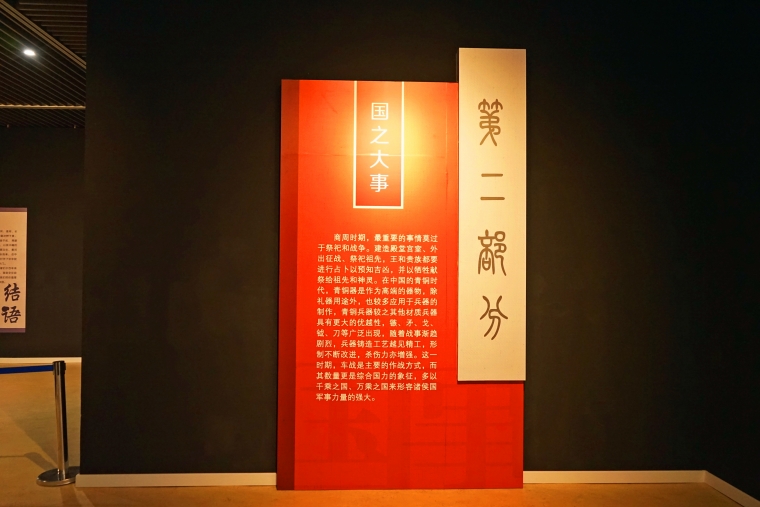 国之大事
第二部分
商周时期，最重要的事情莫过
于祭祀和战争。建造殿堂宫室、外
出征战、祭祀祖先，王和贵族都要
进行占卜以预知吉凶，并以牺牲献
祭给祖先和神灵。在中国的青铜时
代，青铜器是作为高端的器物，除
礼器用途外，也较多应用于兵器的
制作，青铜兵器较之其他材质兵器
具有更大的优越性，镞、矛、戈、
钺、刀等广泛出现，随着战事渐趋
剧烈，兵器铸造工艺越见精工，形
制不断改进，杀伤力亦增强。这一
时期，车战是主要的作战方式，而
其数量更是综合国力的象征，多以
千乘之国、万乘之国来形容诸侯国
军事力量的强大。
结语